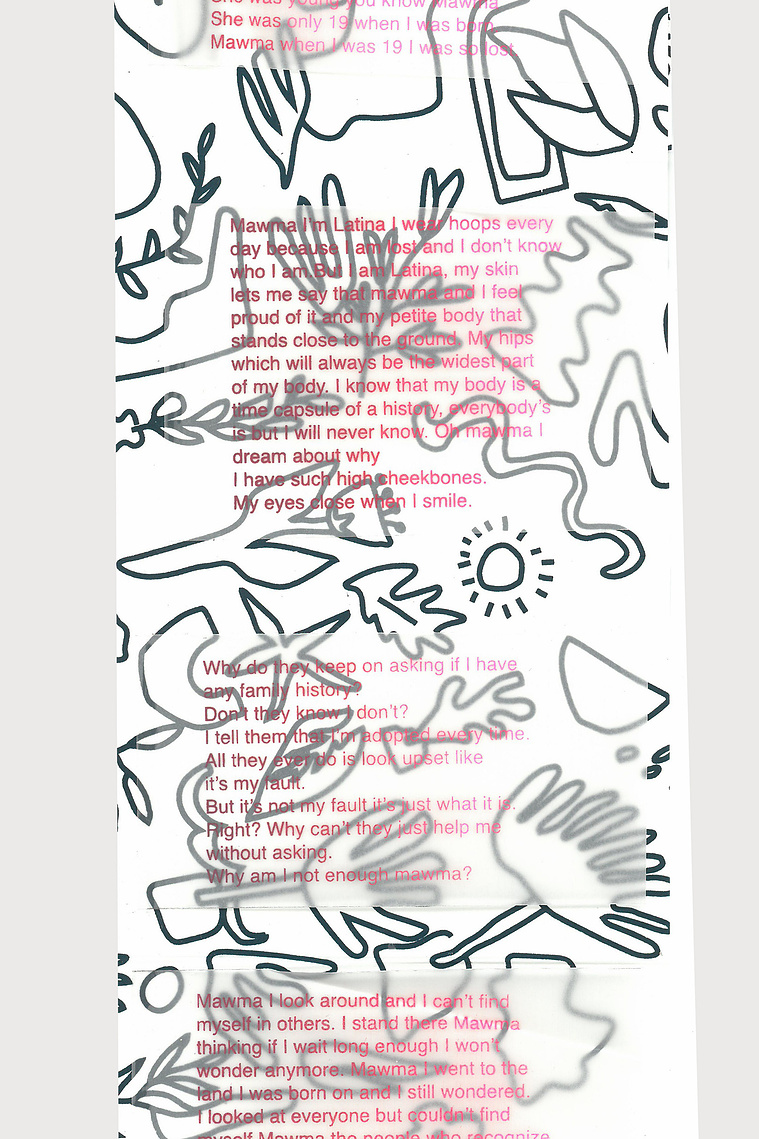 She was young you know Mawma
She was only 19 when I was born,
Mawma when I was 19 I was so lost.
Mawma I'm Latina I wear hoops every
day because I am lost and I don't know
who I am.But I am Latina, my skin
lets me say that mawma and I feel
proud of it and my petite body that
stands close to the ground. My hips
which will always be the widest part
of my body. I know that my body is a
time capsule of a history, everybody's
is but I will never know. Oh mawma I
dream about why
I have such high cheekbones.
My eyes close when I smile.
Why do they keep on asking if I have
any family history?
Don't they know I don't?
I tell them that I'm adopted every time.
All they ever do is look upset like
it's my fault.
But it's not my fault it's just what it is.
Right? Why can't they just help me
without asking.
Why am I not enough mawma?
Mawma I look around and I can't find
myself in others. I stand there Mawma
thinking if I wait long enough I won't
wonder anymore. Mawma I went to the
land I was born on and I still wondered.
I looked at everyone but couldn't find
myself Mawma the people who recognize